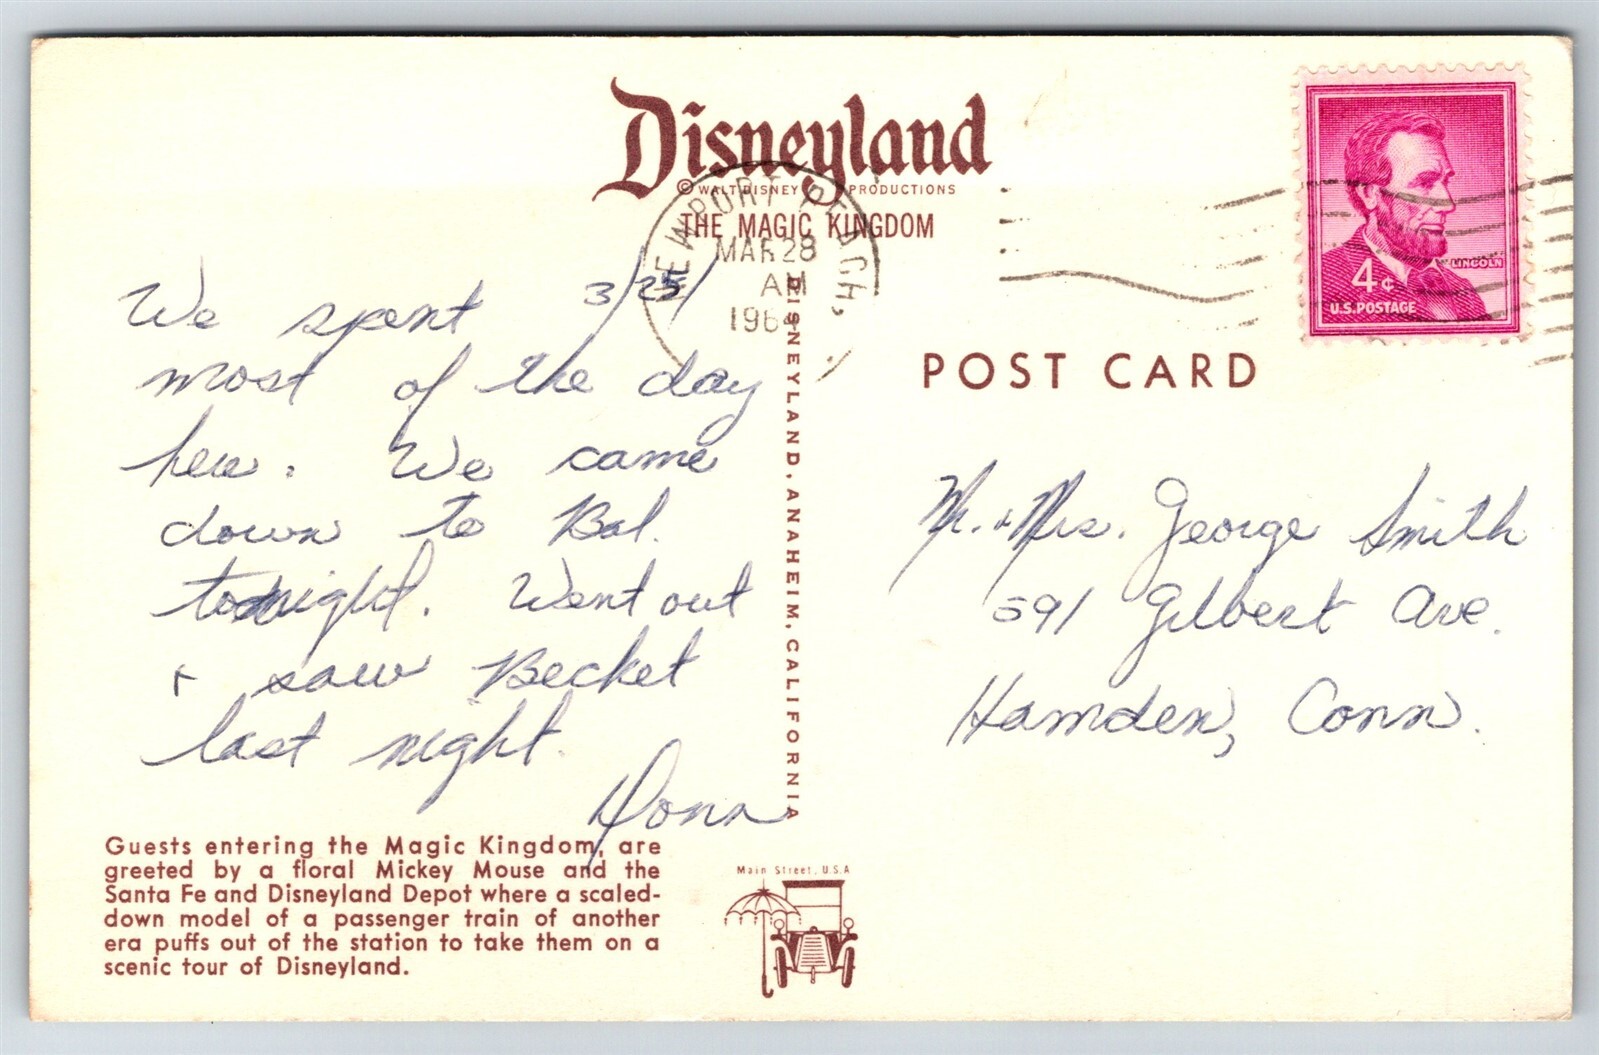 Disneyland
© WALT DISNEY PRODUCTIONS
THE MAGIC KINGDOM
NEWPORT BEACH,
MAR 28
AM
1964
3/25/
We spent
most of the day
here. We came
down to Bal.
tonight. Went out
+ saw Becket
last night.
Donn
Guests entering the Magic Kingdom, are
greeted by a floral Mickey Mouse and the
Santa Fe and Disneyland Depot where a scaled-
down model of a passenger train of another
era puffs out of the station to take them on a
scenic tour of Disneyland.
DISNEYLAND, ANAHEIM, CALIFORNIA
Main Street, U.S.A
LINCOLN
4¢
U.S. POSTAGE
POST CARD
Mr. & Mrs. George Smith
591 Gilbert Ave.
Hamden, Conn.